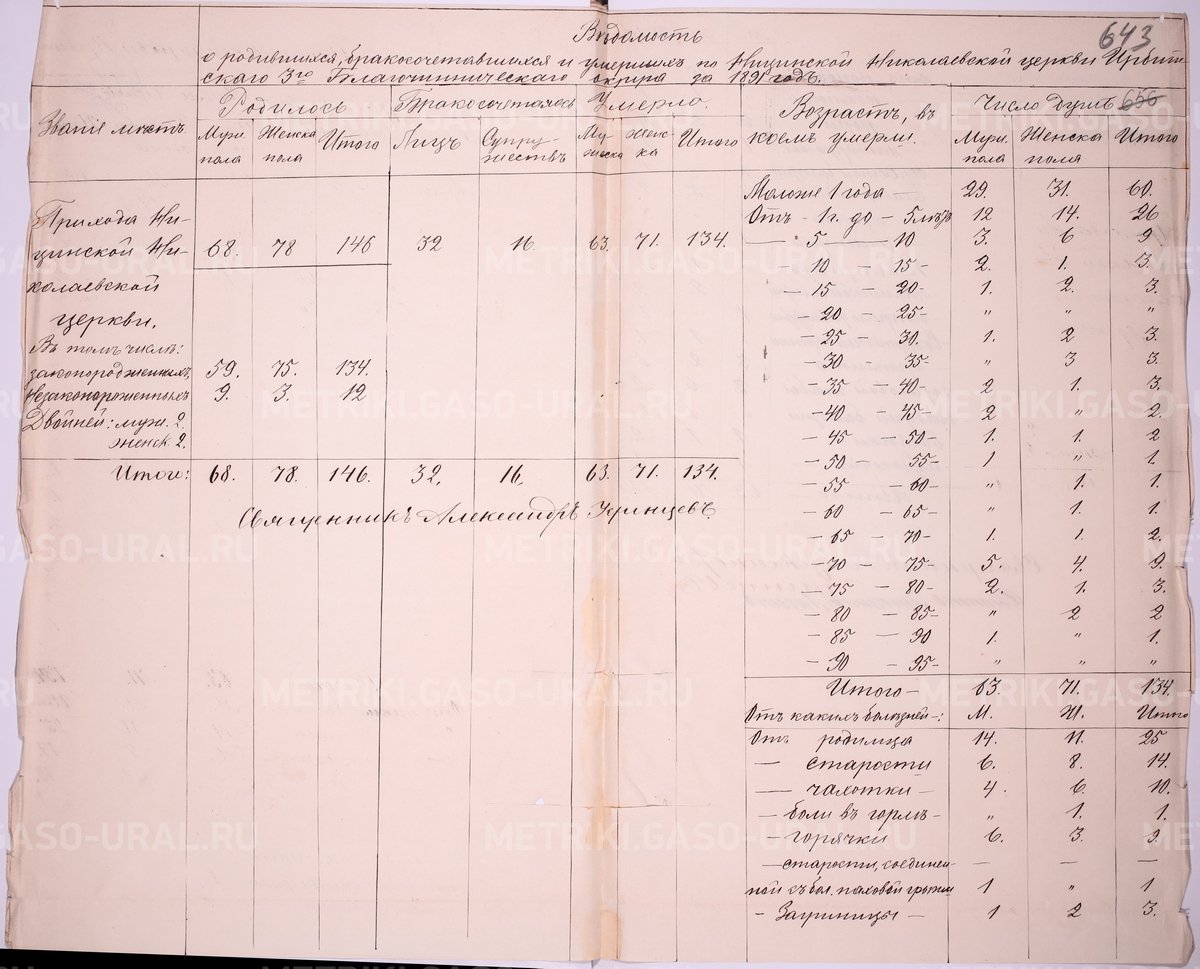 643
Вѣдомость
о родившихся, бракосочетавшихся и умершихъ по Ницинской Николаевской церкви Ирбит-
скаго 3го Благочинническаго округа за 1891 годъ.
Званіе мѣстъ. Родилось Бракосочеталось Умерло. Возрастъ, въ коемъ умерли. Число душъ 656
Муж. пола Женска пола Итого Лицъ Супру- жествъ Му- жеска Женс- ка Итого Муж. пола Женска пола Итого
Прихода Ни-
цинской Ни- 68. 78 146 32 16. 63. 71. 134.
колаевской
церкви.
Въ томъ числѣ:
законорожденныхъ 59. 75. 134.
Незаконорожденныхъ 9. 3. 12
Двойней: муж. 2.
женск. 2.
Итого: 68. 78. 146. 32. 16. 63. 71. 134.
Священникъ Александръ
Моложе 1 года — 29. 31. 60.
Отъ - 1 г. до - 5 лѣтъ 12 14. 26
— 5 — 10 3. 6 9
— 10 — 15 - 2. 1. 3.
— 15 — 20 - 1. 2. 3.
— 20 — 25 - " " "
— 25 — 30. 1. 2 3.
— 30 — 35 - " 3 3.
— 35 — 40 - 2 1. 3.
— 40 — 45 - 2. " 2.
— 45 — 50 - 1. 1. 2
— 50 — 55 - 1 " 1.
— 55 — 60 - " 1. 1.
— 60 — 65 - " 1. 1.
— 65 — 70 - 1. 1. 2.
— 70 — 75 - 5. 4. 9.
— 75 — 80 - 2. 1. 3.
— 80 — 85 - " 2 2
— 85 — 90 1. " 1.
— 90 — 95 - " " "
Итого — 63. 71. 134.
Отъ какихъ болѣзней —: М. Ж. Итого
Отъ родимца 14. 11. 25
— старости 6. 8. 14.
— чахотки — 4. 6. 10.
— боли въ горлѣ - " 1. 1.
— горячки 6. 3. 9.
— старости, соединен- — — —
ной съ бол. паховой грыжи 1 " 1
- 1 2 3.
METRIKI.GASO-URAL.RU